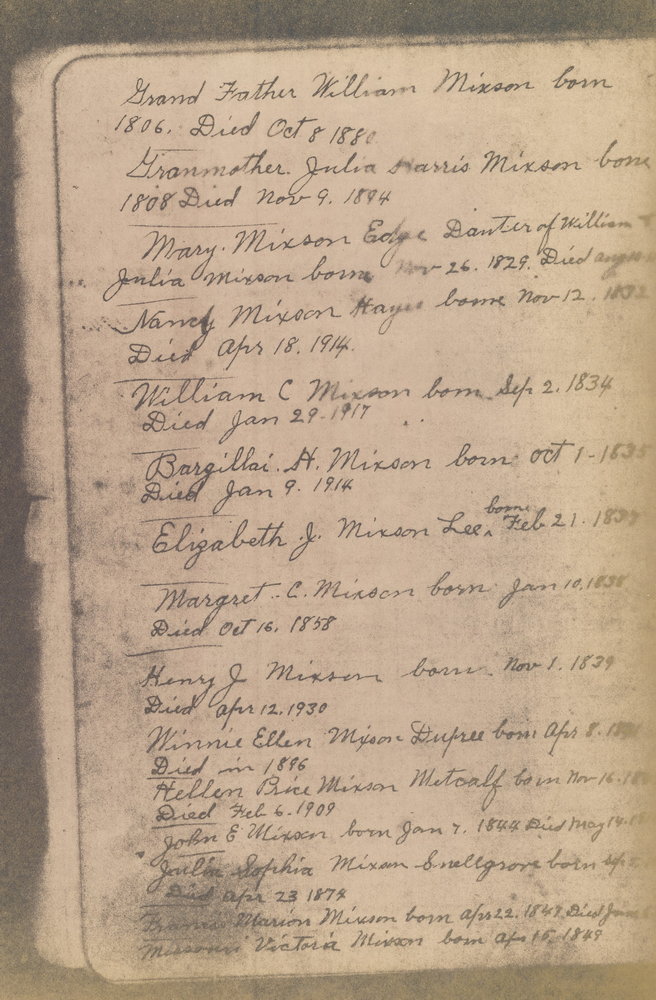 Grand Father William Mixson born
1806. Died Oct 8 1880
Granmother. Julia Harris Mixson borne
1808 Died Nov 9. 1894
Mary. Mixson Edge Dauter of William
Julia Mixson borne Nov 26. 1829. Died
Nancy Mixson Hayes borne Nov 12. 1832
Died Apr 18, 1914.
William C Mixson born Sep 2. 1834
Died Jan 29-1917
Bargillai. H. Mixson born Oct 1-1835
Died Jan 9. 1914
borne
Elizabeth J. Mixson Lee, Feb 21. 1837
Margret. C. Mixson born Jan 10, 1838
Died Oct 16, 1858
Henry J Mixson born Nov 1. 1839
Died Apr 12, 1930
Winnie Ellen Mixson Dupree born Apr 8.
Died in 1896
Hellen Price Mixson Metcalf born Nov 16.
Died Feb 6. 1909
John E Mixson born Jan 7. 1844 Died May 14.
Julia Sophia Mixson Snellgrove born
Died Apr 23 1874
Francis Marion Mixson born Apr 22. 1847 Died
Missouri Victoria Mixson born Apr 15, 1849